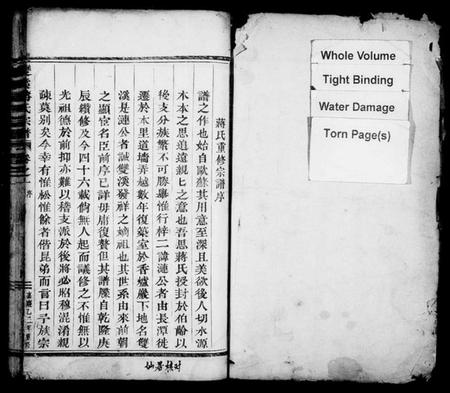 蔣氏重修宗譜序
譜之作也始自歐蘇其用意至深且美欲後人切水源
木本之思追遠親匕之意也吾思蔣氏授封於伯齡以
後支分族繁不可勝舉惟行梓二諱漣公者由長潭徙
遷於木里道塘弄越數年復築室於香爐巖下地名雙
溪是漣公者誠雙溪發祥之始祖也其世系由來前朝
之顯宦名臣前序已詳毋庸復贅但其譜牒自乾隆庚
辰纘修及今四十六載倘無人起而議修之不惟無以
光祖德於前抑亦難以稽支派於後將必昭穆混淆親
疎莫別矣今幸有惟松惟餘者偕昆弟而言曰予族宗
蔣氏宗譜
卷之一
序
Whole Volume
Tight Binding
Water Damage
Torn Page(s)